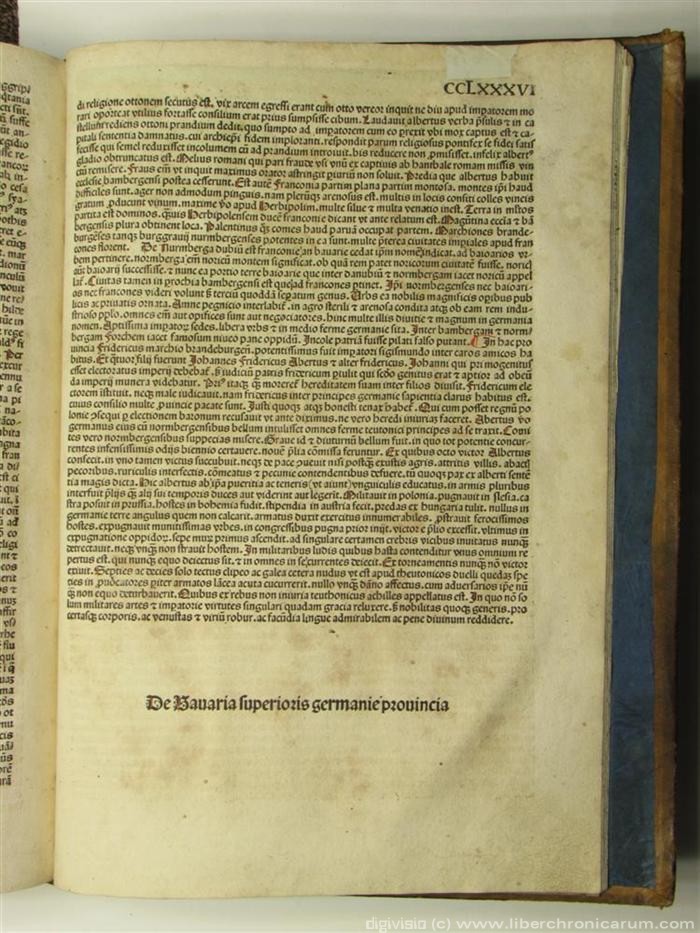 CCLXXXVI
di religione ottonem secutus est. vix arcem egressi erant cum otto vereor inquit ne diu apud impatorem mo
rari oporteat vtilius fortasse consilium erat prius sumpsisse cibum. Laudauit albertus verba p̄sulis & in ca
stellum rediens ottoni prandium dedit. quo sumpto ad imperatorem cum eo prexit vbi mox captus est & ca
pitali sententia damnatus. cui archiep̄i fidem imploranti. respondit parum religiosus pontifex se fidei satis
fecisse qui semel reduxisset incolumem cū ad prandium introiuit. bis reducere non p̄misisset. infelix albertꝰ
gladio obtruncatus est. Melius romani qui pari fraude vsū vn̄ ex captiuis ab hanibale romam missis vin
ctū remisere. Fraus em̄ vt inquit maximus orator astringit piurū non soluit. Predia que albertus habuit
ecclesie bambergensis postea cesserunt. Est autē Franconia partim plana partim montosa. montes ip̄i haud
difficiles sunt. ager non admodum pinguis. nam plerūqꝫ arenosus est. multis in locis consiti colles vineis
gratum p̄ducunt vinum. maxime v̄o apud Herbipolim. multe silue & multa venatio inest. Terra in mltos
partita est dominos. quis Herbipolensem ducē franconie dicant vt ante relatum est. Magūtina eccl̄ia & bā
bergensis plura obtinent loca. Palentinus qꝫ comes haud paruā occupat partem. Marchiones brande
burgēses tanqꝫ burggrauij nurmbergenses potentes in ea sunt. multe p̄terea ciuitates impiales apud fran
cones florent. De Nurmberga dubiū est franconie an bauarie cedat ip̄m nomē indicat. ad baioarios vr
bem pertinere. normberga em̄ noricū montem significat. ob quā rem patet noricorum ciuitatē fuisse. noricꝭ
aūt baioarij successisse. & nunc ea portio terre baioarie que inter danubiū & normbergam iacet noricū appel
laꝉ. Ciuitas tamen in prochia bambergensi est que ad francones ptinet. Ip̄i normbergenses nec baioari
os nec francones videri volunt s̄ terciū quoddā sepatum genus. Vrbs ea nobilis magnificis opibus pub
licis ac priuatis ornata. Amne pegnicio interlabiꝉ. in agro sterili & arenosa condita atqꝫ ob eam rem indu
strioso pplo. omnes em̄ aut opifices sunt aut negociatores. hinc multe illis diuitie & magnum in germania
nomen. Aptissima impatorꝫ sedes. libera vrbs & in medio ferme germanie sita. Inter bambergam & norm
bergam Forchem iacet famosum niueo pane oppidū. Incole patriā fuisse pilati falso putant. ¶ In hac pro
uincia Fridericus marchio brandeburgen̄. potentissimus fuit impatori sigismundo inter caros amicos ha
bitus. Et q̈tuorꝫ filij fuerunt Johannes Fridericus Albertus & alter fridericus. Johanni qui primogenitꝰ
esset electoratus imperij debebaꝉ. s̄ iudiciū patris fridericum ptulit qui sc̄do genitus erat & aptior ad obeū
da imperij munera videbatur. Priꝰ itaqꝫ q̄ moreret hereditatem suam inter filios diuisit. Fridericum ele
ctorem istituit. neqꝫ male iudicauit. nam fridericus inter principes germanie sapientia clarus habitus est.
cuius consilio multe prouincie pacate sunt. Justi quoqꝫ atqꝫ honesti tenax habeꝉ. Qui cum posset regnū po
lonie Jsequi p electionem baronum recusauit vt ante diximus. ne vero heredi iniurias faceret. Albertus v̄o
germanus eius cū normbergensibus bellum intulisset omnes ferme teutonici principes ad se traxit. Comi
tes vero normbergensibus suppecias misere. Graue id & diuturnū bellum fuit. in quo tot potentie concur
rentes infensissimis odijs biennio certauere. noue p̄lia cōmissa feruntur. Ex quibus octo victor Albertus
confecit. in vno tamen victus succubuit. neqꝫ de pace potuit nisi postqꝫ exustis agris. attritis villis. abactꝭ
pecoribus. ruriculis interfectis. cōmeatus & pecunie contendentibus defuere. tū quoqꝫ pax ex alberti sentē
tia magis dicta. Hic albertus ab ip̄a pueritia ac teneris (vt aiunt) vnguiculis educatus. in armis pluribus
interfuit p̄lijs qꝫ alij sui temporis duces aut viderint aut legerit. Militauit in polonia. pugnauit in slesia. ca
stra posuit in prussia. hostes in bohemia fudit. stipendia in austria fecit. predas ex hungaria tulit. nullus in
germanie terre angulus quem non calcarit. armatus duxit exercitus innumerabiles. p̄strauit ferocissimos
hostes. expugnauit munitissimas vrbes. in congressibus pugna prior inijt. victor e p̄lio excessit. vltimus in
expugnatione oppidorꝫ. sepe muꝝ primus ascendit. ad singulare certamen crebris vicibus inuitatus nunqꝫ
detrectauit. neqꝫ vnqꝫ non strauit hostem. In militaribus ludis quibus hasta contenditur vnus omnium re
pertus est. qui nunqꝫ equo deiectus sit. & in omnes in se currentes deiecit. Ex torneamentis nunqꝫ nō victor
exiuit. Septies ac decies solo tectus clipeo ac galea cetera nudus vt est apud theutonicos duelli quedaꝫ spe
cies in p̄uocatores piter armatos lācea acuta cucurrerit. nullo vnqꝫ dāno affectus. cum aduersarios ip̄e nū
qꝫ non equo deturbauerit. Quibus ex rebus non iniuria teuthonicus achilles appellatus est. In quo nō so
lum militares artes & impatorie virtutes singulari quadam gracia reluxere. s̄ nobilitas quoqꝫ generis. pro
ceritasqꝫ corporis. ac venustas & viriū robur. ac facūdia lingue admirabilem ac pene diuinum reddidere.
De Bauaria superioris germanie prouincia
digivisio (c) www.liberchronicarum.com